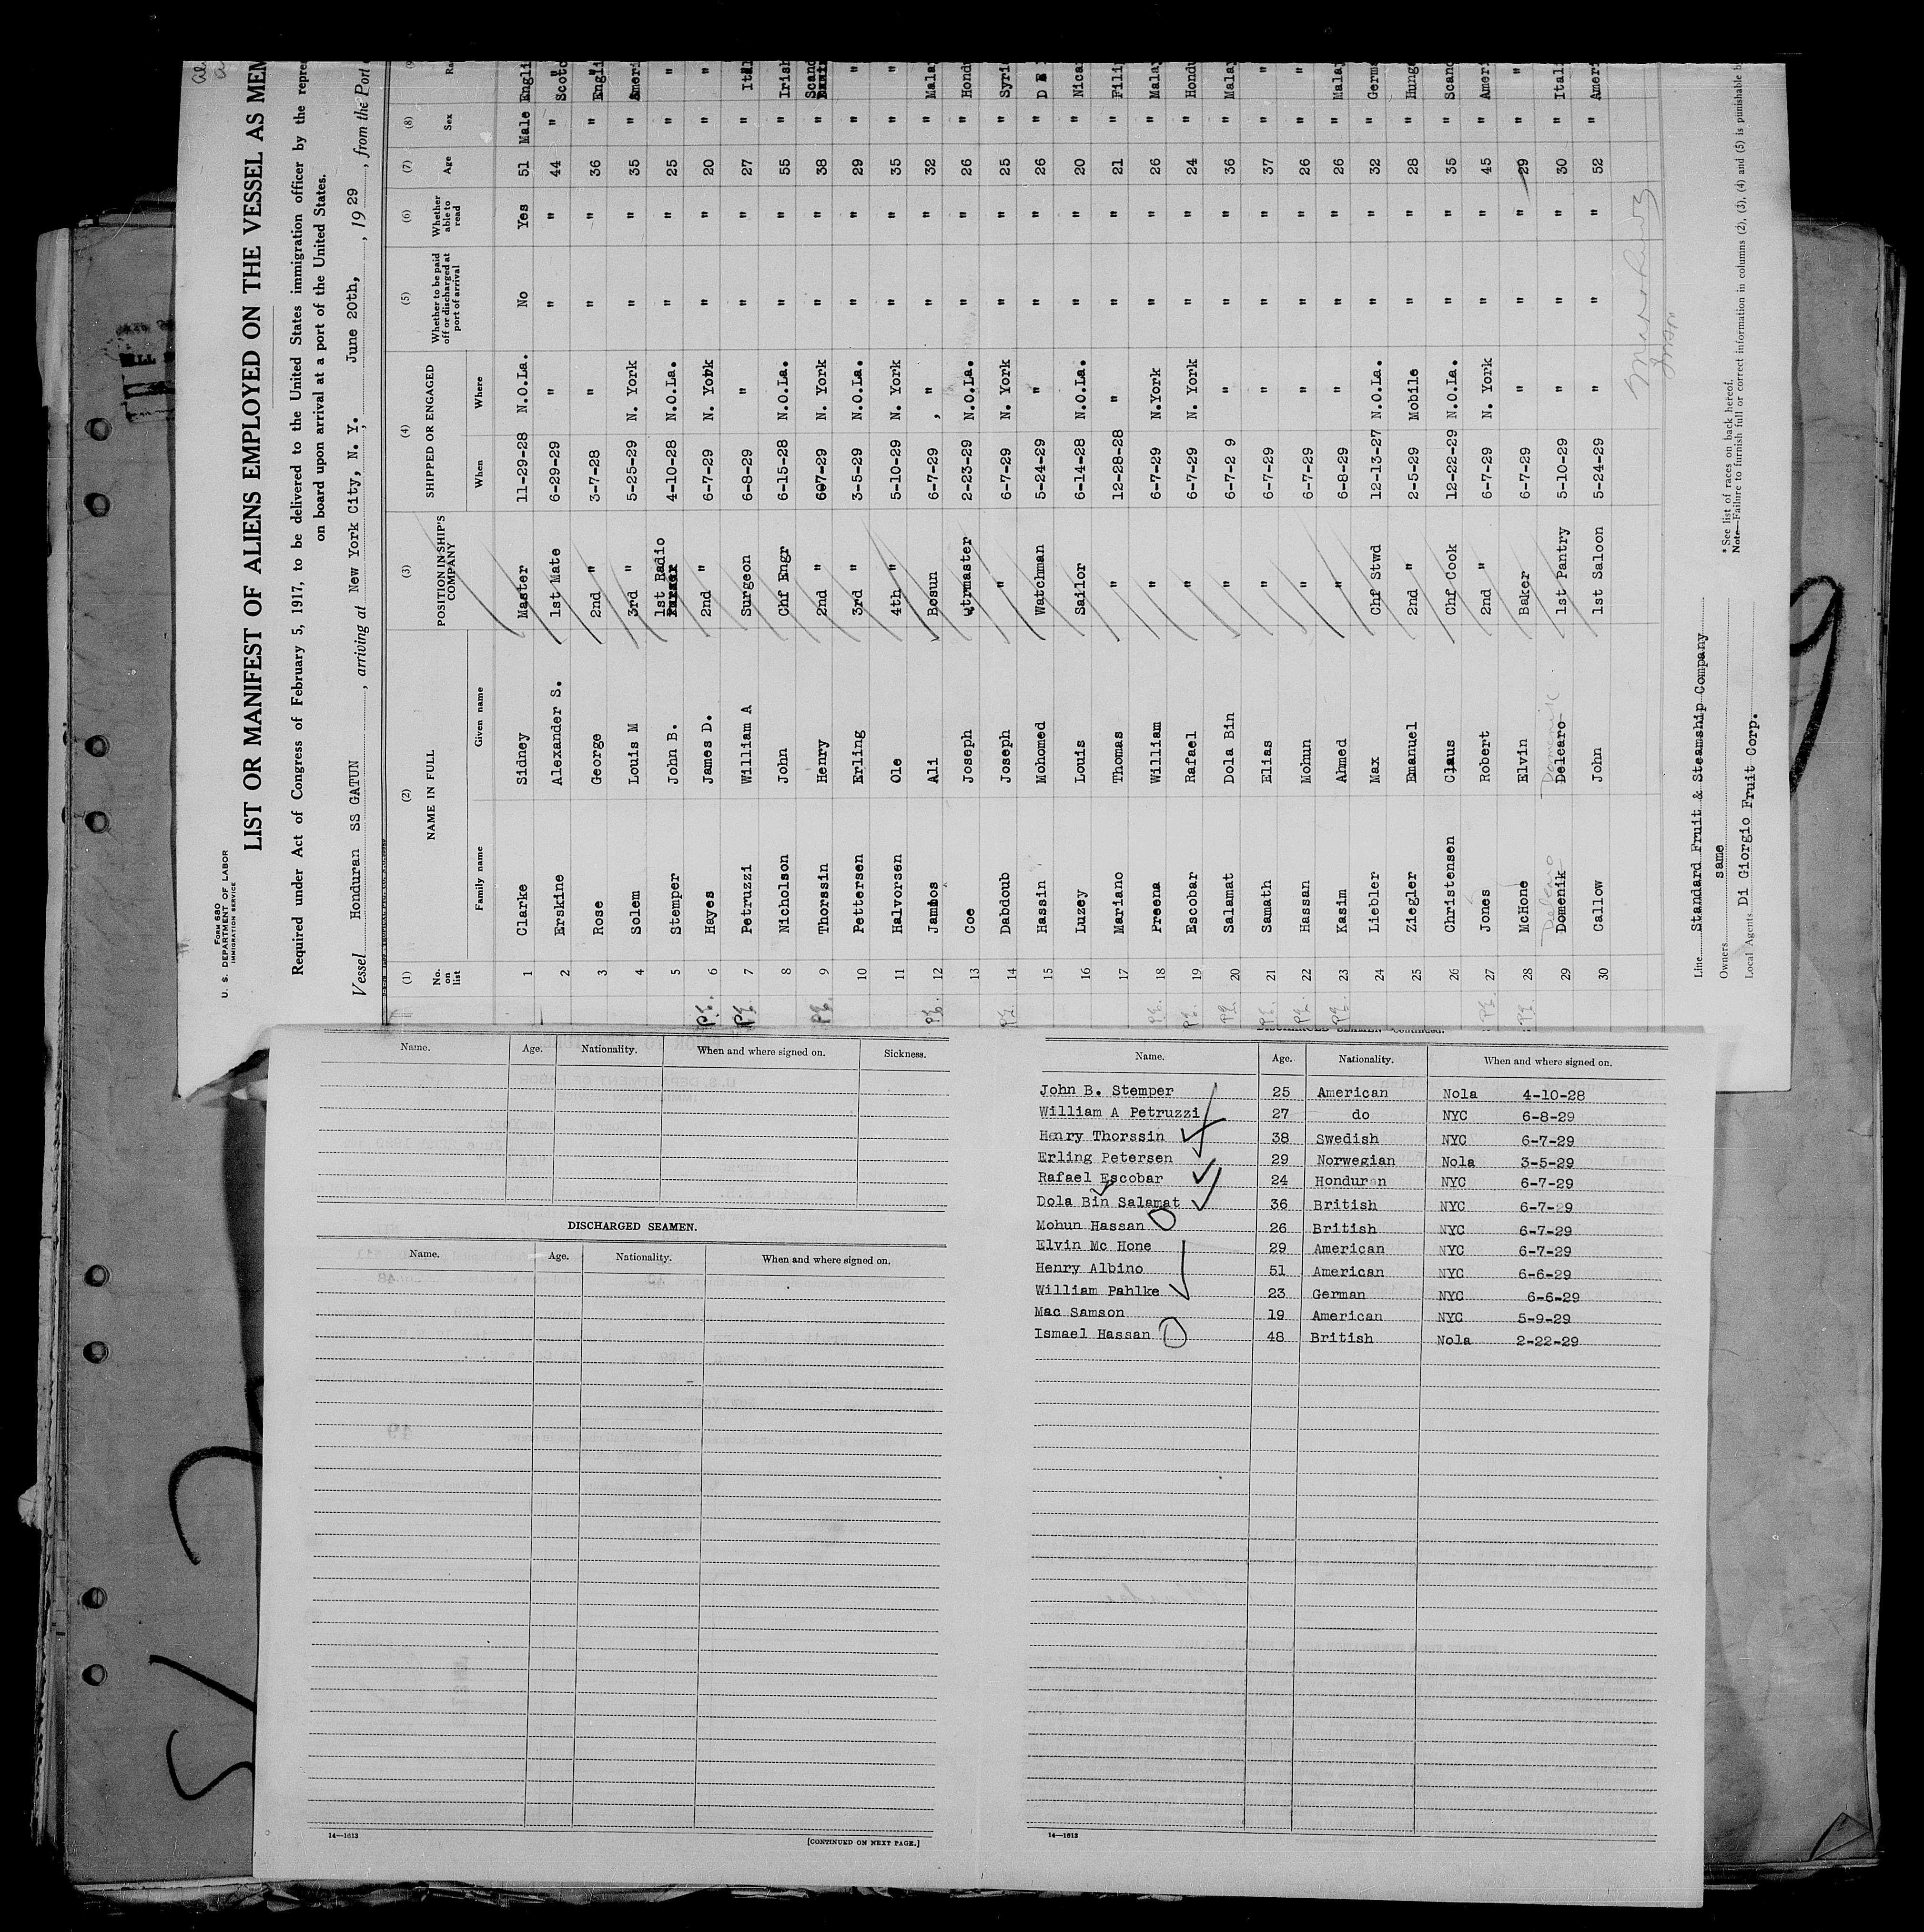 FORM 680
U. S. DEPARTMENT OF LABOR
IMMIGRATION SERVICE
LIST OR MANIFEST OF ALIENS EMPLOYED ON THE VESSEL AS MEM
Required under Act of Congress of February 5, 1917, to be delivered to the United States immigration officer by the repre
on board upon arrival at a port of the United States.
Vessel Honduran SS GATUN, arriving at New York City, N. Y., June 20th, , 19 29, from the Port
(1) (2) (3) (4) (5) (6) (7) (8)
No. on list NAME IN FULL POSITION IN SHIP'S COMPANY SHIPPED OR ENGAGED Whether to be paid off or discharged at port of arrival Whether able to read Age Sex Ra
Family name Given name When Where
1 Clarke Sidney Master 11-29-28 N.O.La. No Yes 51 Male Engli
2 Erskine Alexander S. 1st Mate 6-29-29 " " " 44 " Scotc
3 Rose George 2nd " 3-7-28 " " " 36 " Engli
4 Solem Louis M 3rd " 5-25-29 N. York " " 35 " Ameri
5 Stemper John B. 1st Radio 4-10-28 N.O.La. " " 25 " "
6 Hayes James D. 2nd " 6-7-29 N. York " " 20 " "
7 Petruzzi William A Surgeon 6-8-29 " " " 27 " Ital
8 Nicholson John Chf Engr 6-15-28 N.O.La. " " 55 " Irish
9 Thorssin Henry 2nd " 607-29 N. York " " 38 " Scand
10 Pettersen Erling 3rd " 3-5-29 N.O.La. " " 29 " "
11 Halvorsen Ole 4th " 5-10-29 N. York " " 35 " "
12 Jambos Ali Bosun 6-7-29 , " " " 32 " Malay
13 Coe Joseph Qtrmaster 2-23-29 N.O.La. " " 26 " Hond
14 Dabdoub Joseph " 6-7-29 N. York " " 25 " Syri
15 Hassin Mohomed Watchman 5-24-29 " " " 26 " D E
16 Luzey Louis Sailor 6-14-28 N.O.La. " " 20 " Nica
17 Mariano Thomas " 12-28-28 " " " 21 " Fili
18 Preena William " 6-7-29 N.York " " 26 " Malay
19 Escobar Rafael " 6-7-29 N. York " " 24 " Hondu
20 Salamat Dola Bin " 6-7-2 9 " " " 36 " Malay
21 Samath Elias " 6-7-29 " " " 37 " "
22 Hassan Mohun " 6-7-29 " " " 26 " "
23 Kasim Ahmed " 6-8-29 " " " 26 " Malay
24 Liebler Max Chf Stwd 12-13-27 N.O.La. " " 32 " Germa
25 Ziegler Emanuel 2nd " 2-5-29 Mobile " " 28 " Hunga
26 Christensen Claus Chf Cook 12-22-29 N.O.La. " " 35 " Scand
27 Jones Robert 2nd " 6-7-29 N. York " " 45 " Ameri
28 McHone Elvin Baker 6-7-29 " " " 29 " "
Delcaro Domenik
29 Domenik Delcaro 1st Pantry 5-10-29 " " " 30 " Itali
30 Callow John 1st Saloon 5-24-29 " " " 52 " Ameri
Line Standard Fruit & Steamship Company
Owners same
Local Agents Di Giorgio Fruit Corp.
* See list of races on back hereof.
Note—Failure to furnish full or correct information in columns (2), (3), (4) and (5) is punishable b
Name. Age. Nationality. When and where signed on. Sickness.
DISCHARGED SEAMEN.
Name. Age. Nationality. When and where signed on.
14—1613
[CONTINUED ON NEXT PAGE.]
DISCHARGED SEAMEN—Continued.
Name. Age. Nationality. When and where signed on.
John B. Stemper 25 American Nola 4-10-28
William A Petruzzi 27 do NYC 6-8-29
Henry Thorssin 38 Swedish NYC 6-7-29
Erling Petersen 29 Norwegian Nola 3-5-29
Rafael Escobar 24 Honduran NYC 6-7-29
Dola Bin Salamat 36 British NYC 6-7-29
Mohun Hassan 26 British NYC 6-7-29
Elvin Mc Hone 29 American NYC 6-7-29
Henry Albino 51 American NYC 6-6-29
William Pahlke 23 German NYC 6-6-29
Mac Samson 19 American NYC 5-9-29
Ismael Hassan 48 British Nola 2-22-29
14—1613